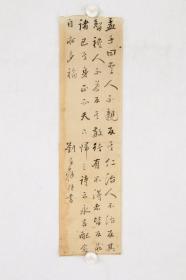 孟子曰愛人不親反其仁治人不治反其
智禮人不答反其敬行有不得者皆反求
諸己其身正而天下歸之詩云永言配命
自求多福
劉
書